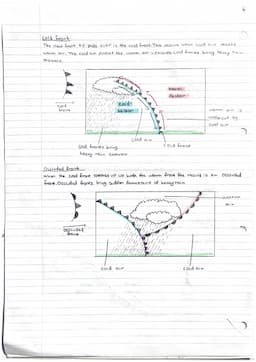 Cold front
The cold front
is the cold front. This occurs when cold air meets
warm air. The cold air pushes the warm air upwards. Cold fronts bring heavy rain
showers.
Warm
Sector
Cold
Sector
cold
front
warm air is
cold air
cold air
cold front
Cold fronts bring
heavy rain showers
Occluded front
When the cold front catches up with the warm front the result is an occluded
front. Occluded fronts bring sudden downpours of heavy rain
occluded
front
cold air
cold air